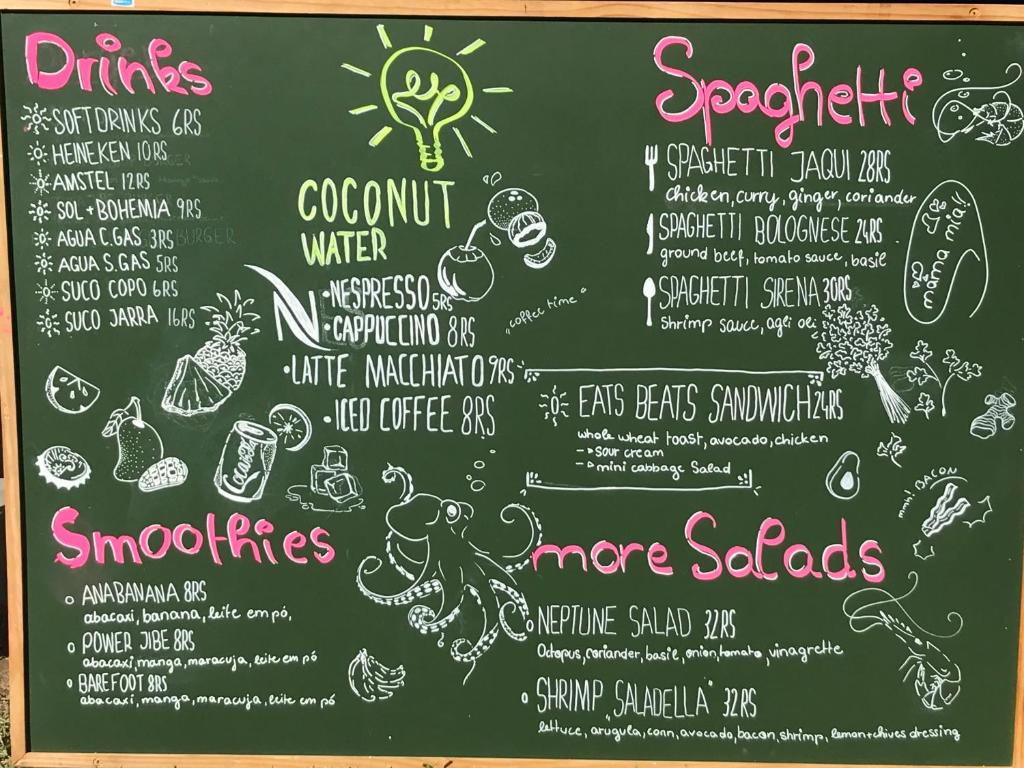 Drinks
SOFTDRINKS 6RS
HEINEKEN 10RS
AMSTEL 12RS
SOL + BOHEMIA 9RS
AGUA C.GAS 3RS
BURGER
AGUA S.GAS 5RS
SUCO COPO 6RS
SUCO JARRA 16RS
COCONUT
WATER
NESPRESSO 5RS
CAPPUCCINO 8RS
LATTE MACCHIATO 9RS
ICED COFFEE 8RS
„coffee time"
Spaghetti
SPAGHETTI JAQUI 28RS
chicken, curry, ginger, coriander
SPAGHETTI BOLOGNESE 24RS
ground beef, tomato sauce, basil
SPAGHETTI SIRENA 30RS
shrimp sauce, agli oli
mama mia!!
EATS BEATS SANDWICH 24RS
whole wheat toast, avocado, chicken
sour cream
mini cabbage Salad
mmh! BACON
Smoothies
ANABANANA 8RS
abacaxi, banana, leite em pó,
POWER JIBE 8RS
abacaxi, manga, maracuja, leite em pó
BAREFOOT 8RS
abacaxi, manga, maracuja, leite em pó
more Salads
NEPTUNE SALAD 32RS
Octopus, coriander, basil, onion, tomato, vinagrette
SHRIMP „SALADELLA" 32RS
lettuce, arugula, corn, avocado, bacon, shrimp, lemon+chives dressing